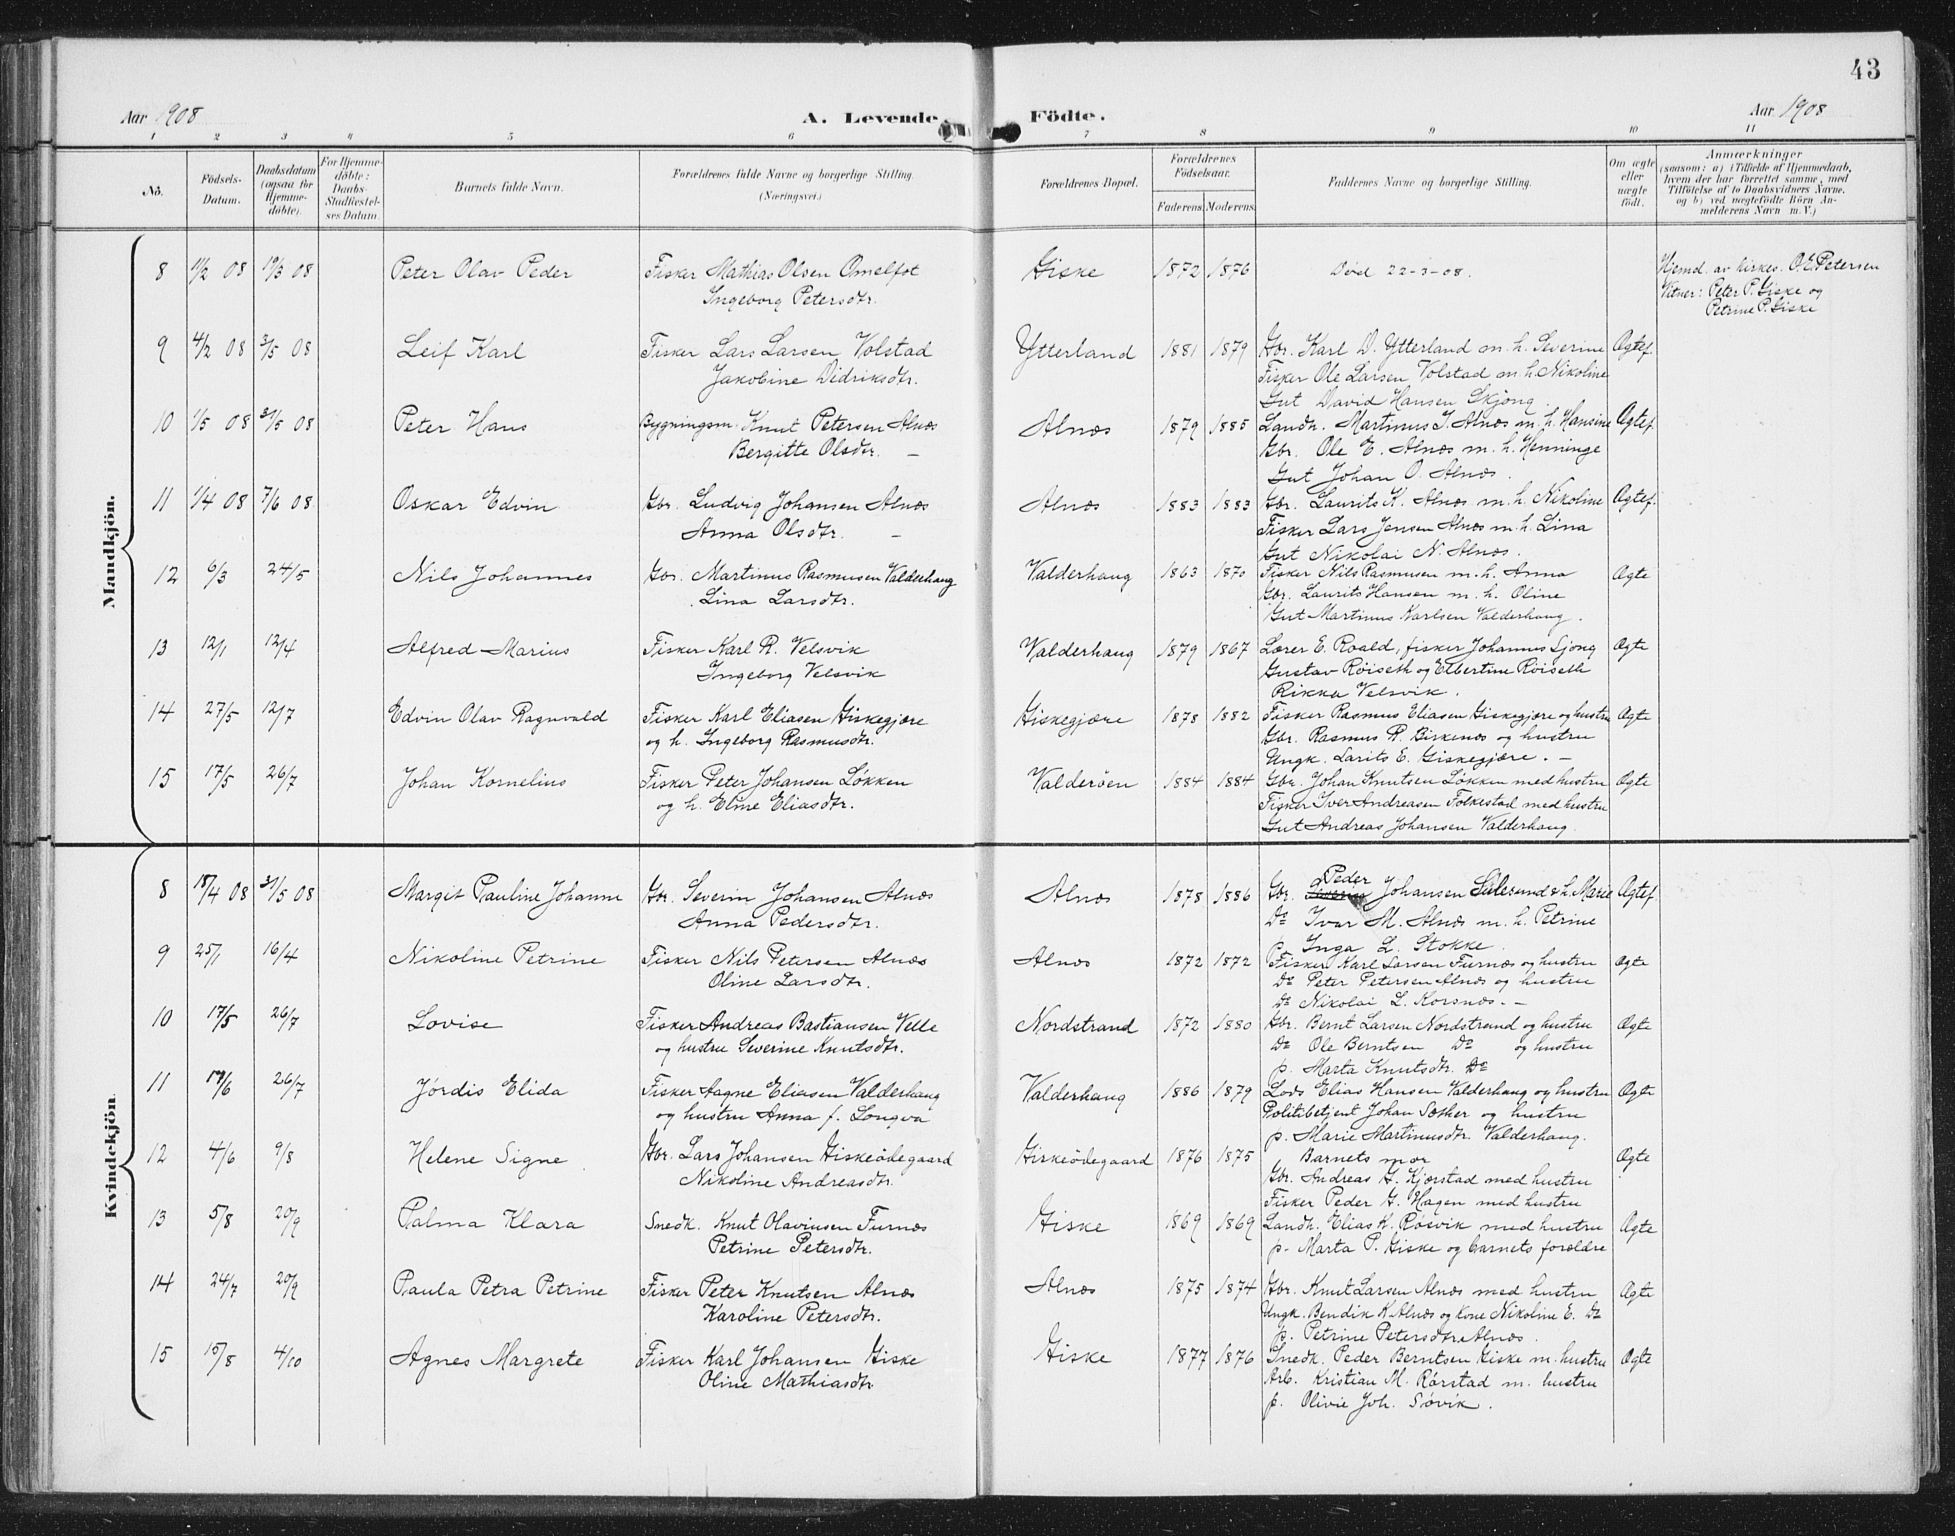 43
Aar 1908
A. Levende Födte.
Aar 1908
1 2 3 4 5 6 7 8 9 10 11
No.
Födsels-Datum.
Daabsdatum (ogsaa for Hjemme-döbte).
For Hjemme-döbte: Daabs-Stadfæstel-ses Datum.
Barnets fulde Navn.
Forældrenes fulde Navne og borgerlige Stilling. (Næringsvei.)
Forældrenes Bopæl.
Forældrenes Födselsaar.
Faderens. Moderens.
Faddernes Navne og borgerlige Stilling.
Om ægte eller uægte födt.
Anmærkninger
(saasom: a) i Tilfælde af Hjemmedaab,
hvem der har forrettet samme, med
Tilföielse af to Daabsvidners Navne,
og b) ved uægtefödte Börn An-
melderens Navn m. V.)
Mandkjön.
8 1/2 08 19/3 08 Peter Olav Peder Fisker Mathias Olsen Omelfot Giske 1872 1876 Död 22-3-08. Hjemd. av kirkes. O. E. Petersen
Ingeborg Petersdtr. Vitner: Peter P. Giske og
Petrine P. Giske
9 4/2 08 3/5 08 Leif Karl Fisker Lars Larsen Volstad Ytterland 1881 1879 Gbr. Karl D. Ytterland m. h. Severine Ægtef.
Jakobine Didriksdtr. Fisker Ole Larsen Volstad m. h. Nikoline
Gut David Hansen Skjong.
10 1/5 08 31/5 08 Peter Hans Bygningsm. Knut Petersen Alnæs Alnæs 1879 1885 Landh. Martinus J. Alnæs m. h. Hansine Ægtef.
Bergitte Olsdtr. - Gbr. Ole E. Alnæs m. h. Henninge
Gut Johan O. Alnæs.
11 1/4 08 7/6 08 Oskar Edvin Gbr. Ludvig Johansen Alnæs Alnæs 1883 1883 Gbr. Laurits K. Alnæs m. h. Nikoline Ægtef.
Anna Olsdtr. - Fisker Lars Jensen Alnæs m. h. Lina
Gut Nikolai N. Alnæs.
12 6/3 24/5 Nils Johannes Gbr. Martinus Rasmusen Valderhaug Valderhaug 1863 1870 Fisker Nils Rasmusen m. h. Anna Ægte
Lina Larsdtr. Gbr. Laurits Hansen m. h. Oline
Gut Martinus Karlsen Valderhaug.
13 12/1 12/4 Alfred Marius Fisker Karl R. Velsvik Valderhaug 1879 1867 Lærer E. Roald, fisker Johannes Sjong Ægte
Ingeborg Velsvik Gustav Röiseth og Elbertine Röiseth
Rikka Velsvik.
14 27/5 12/7 Edvin Olav Ragnvald Fisker Karl Eliasen Giskegjære Giskegjære 1878 1882 Fisker Rasmus Eliasen Giskegjære og hustru Ægte
og h. Ingeborg Rasmusdtr. Gbr. Rasmus R. Birkenæs og hustru
Ungk. Larits E. Giskegjære. -
15 17/5 26/7 Johan Kornelius Fisker Peter Johansen Lökken Valderöen 1884 1884 Gbr. Johan Knutsen Lökken med hustru Ægte
og h. Eline Eliasdtr. Fisker Iver Andreasen Folkestad med hustru
Gut Andreas Johansen Valderhaug.
Kvindekjön
Peder
8 18/4 08 31/5 08 Margit Pauline Johanne Gbr. Severin Johansen Alnæs Alnæs 1878 1886 Gbr. Severin Johansen Sulesund & h. Marie Ægtef.
Anna Pedersdtr. Do Ivar M. Alnæs m. h. Petrine
p. Inga L. Stokke.
9 25/1 16/4 Nikoline Petrine Fisker Nils Petersen Alnæs Alnæs 1872 1872 Fisker Karl Larsen Furnæs og hustru Ægte
Oline Larsdtr. Do Peter Petersen Alnæs og hustru
Do Nikolai L. Korsnæs. -
10 17/5 26/7 Lovise Fisker Andreas Bastiansen Velle Nordstrand 1872 1880 Gbr. Bernt Larsen Nordstrand og hustru Ægte
og hustru Severine Knutsdtr. Do Ole Berntsen Do og hustru
p. Marta Knutsdtr. Do
11 17/6 26/7 Jördis Elida Fisker Aagne Eliasen Valderhaug Valderhaug 1886 1879 Lods Elias Hansen Valderhaug og hustru Ægte
og hustru Anna f. Longva Politibetjent Johan Sæther og hustru
p. Marie Martinusdtr. Valderhaug.
12 4/6 9/8 Helene Signe Gbr. Lars Johansen Giskeödegaard Giskeödegaard 1876 1875 Barnets mor Ægte
Nikoline Andreasdtr. Gbr. Andreas G. Kjærstad med hustru
Fisker Peder G. Hagen med hustru
13 5/8 20/9 Palma Klara Snedk. Knut Olavinsen Furnæs Giske 1869 1869 Landh. Elias K. Rösvik med hustru Ægte
Petrine Petersdtr. p. Marta P. Giske og barnets forældre
14 24/7 20/9 Paula Petra Petrine Fisker Peter Knutsen Alnæs Alnæs 1875 1874 Gbr. Knut Larsen Alnæs med hustru Ægte
Karoline Petersdtr. Ungk. Bendik K. Alnæs og kone Nikoline E. Do
p. Petrine Petersdtr. Alnæs.
15 15/8 4/10 Agnes Margrete Fisker Karl Johansen Giske Giske 1877 1876 Snedk. Peder Berntsen Giske m. hustru Ægte
Oline Mathiasdtr Arb. Kristian M. Rörstad m. hustru
p. Olivie Joh. Sövik.